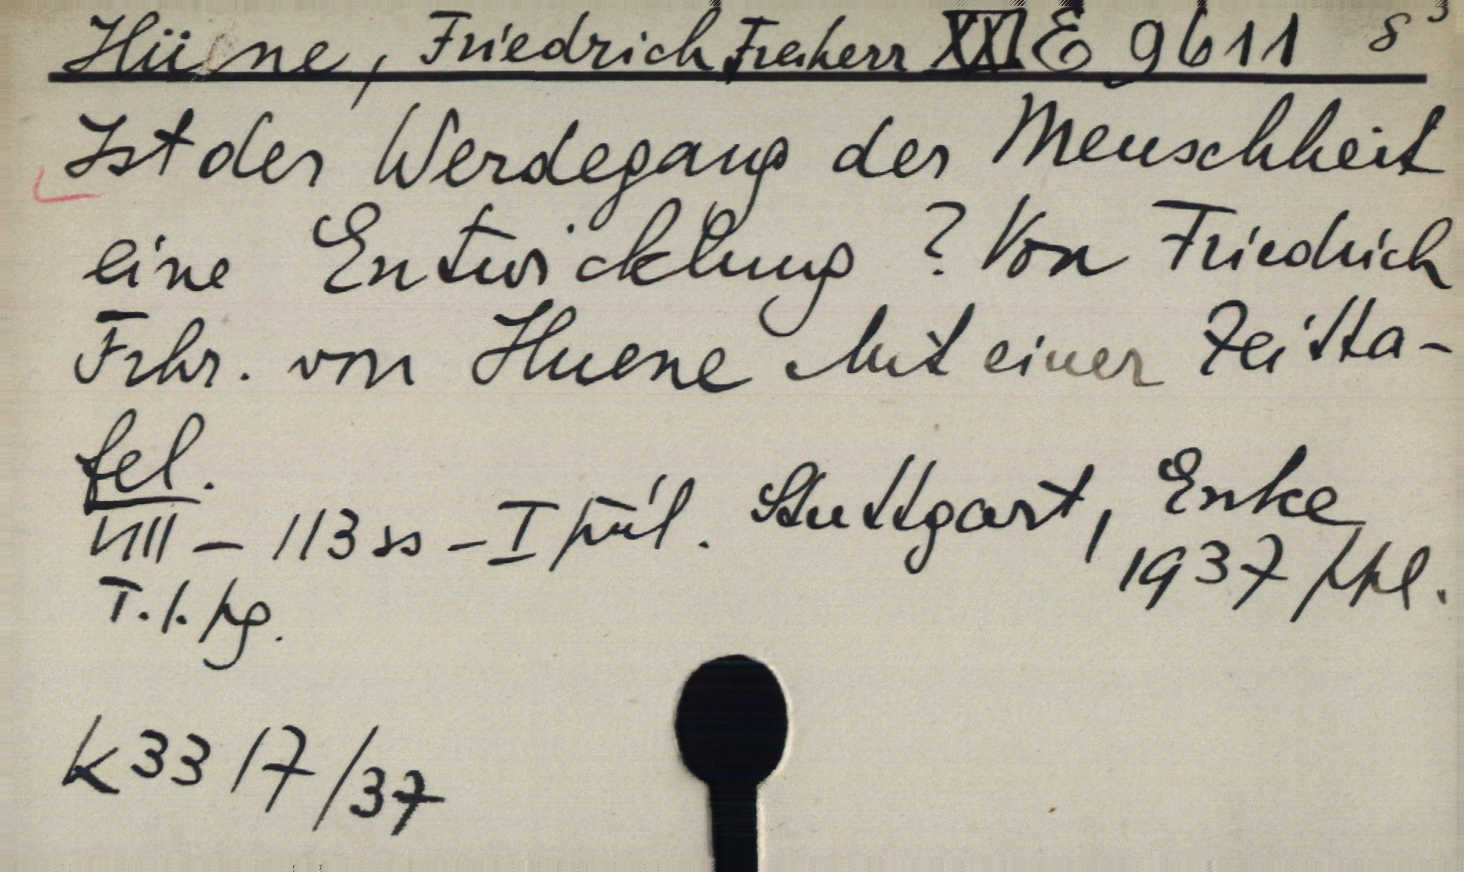 Hüne, Friedrich Freiherr XXI E 9611 8³
Ist der Werdegang der Menschheit
eine Entwicklung? Von Friedrich
Frhr. von Huene Mit einer Zeitta-
fel.
VIII - 113 ss - I příl. Stuttgart, Enke
1937 ppl.
T. l. pg.
K 3317/37